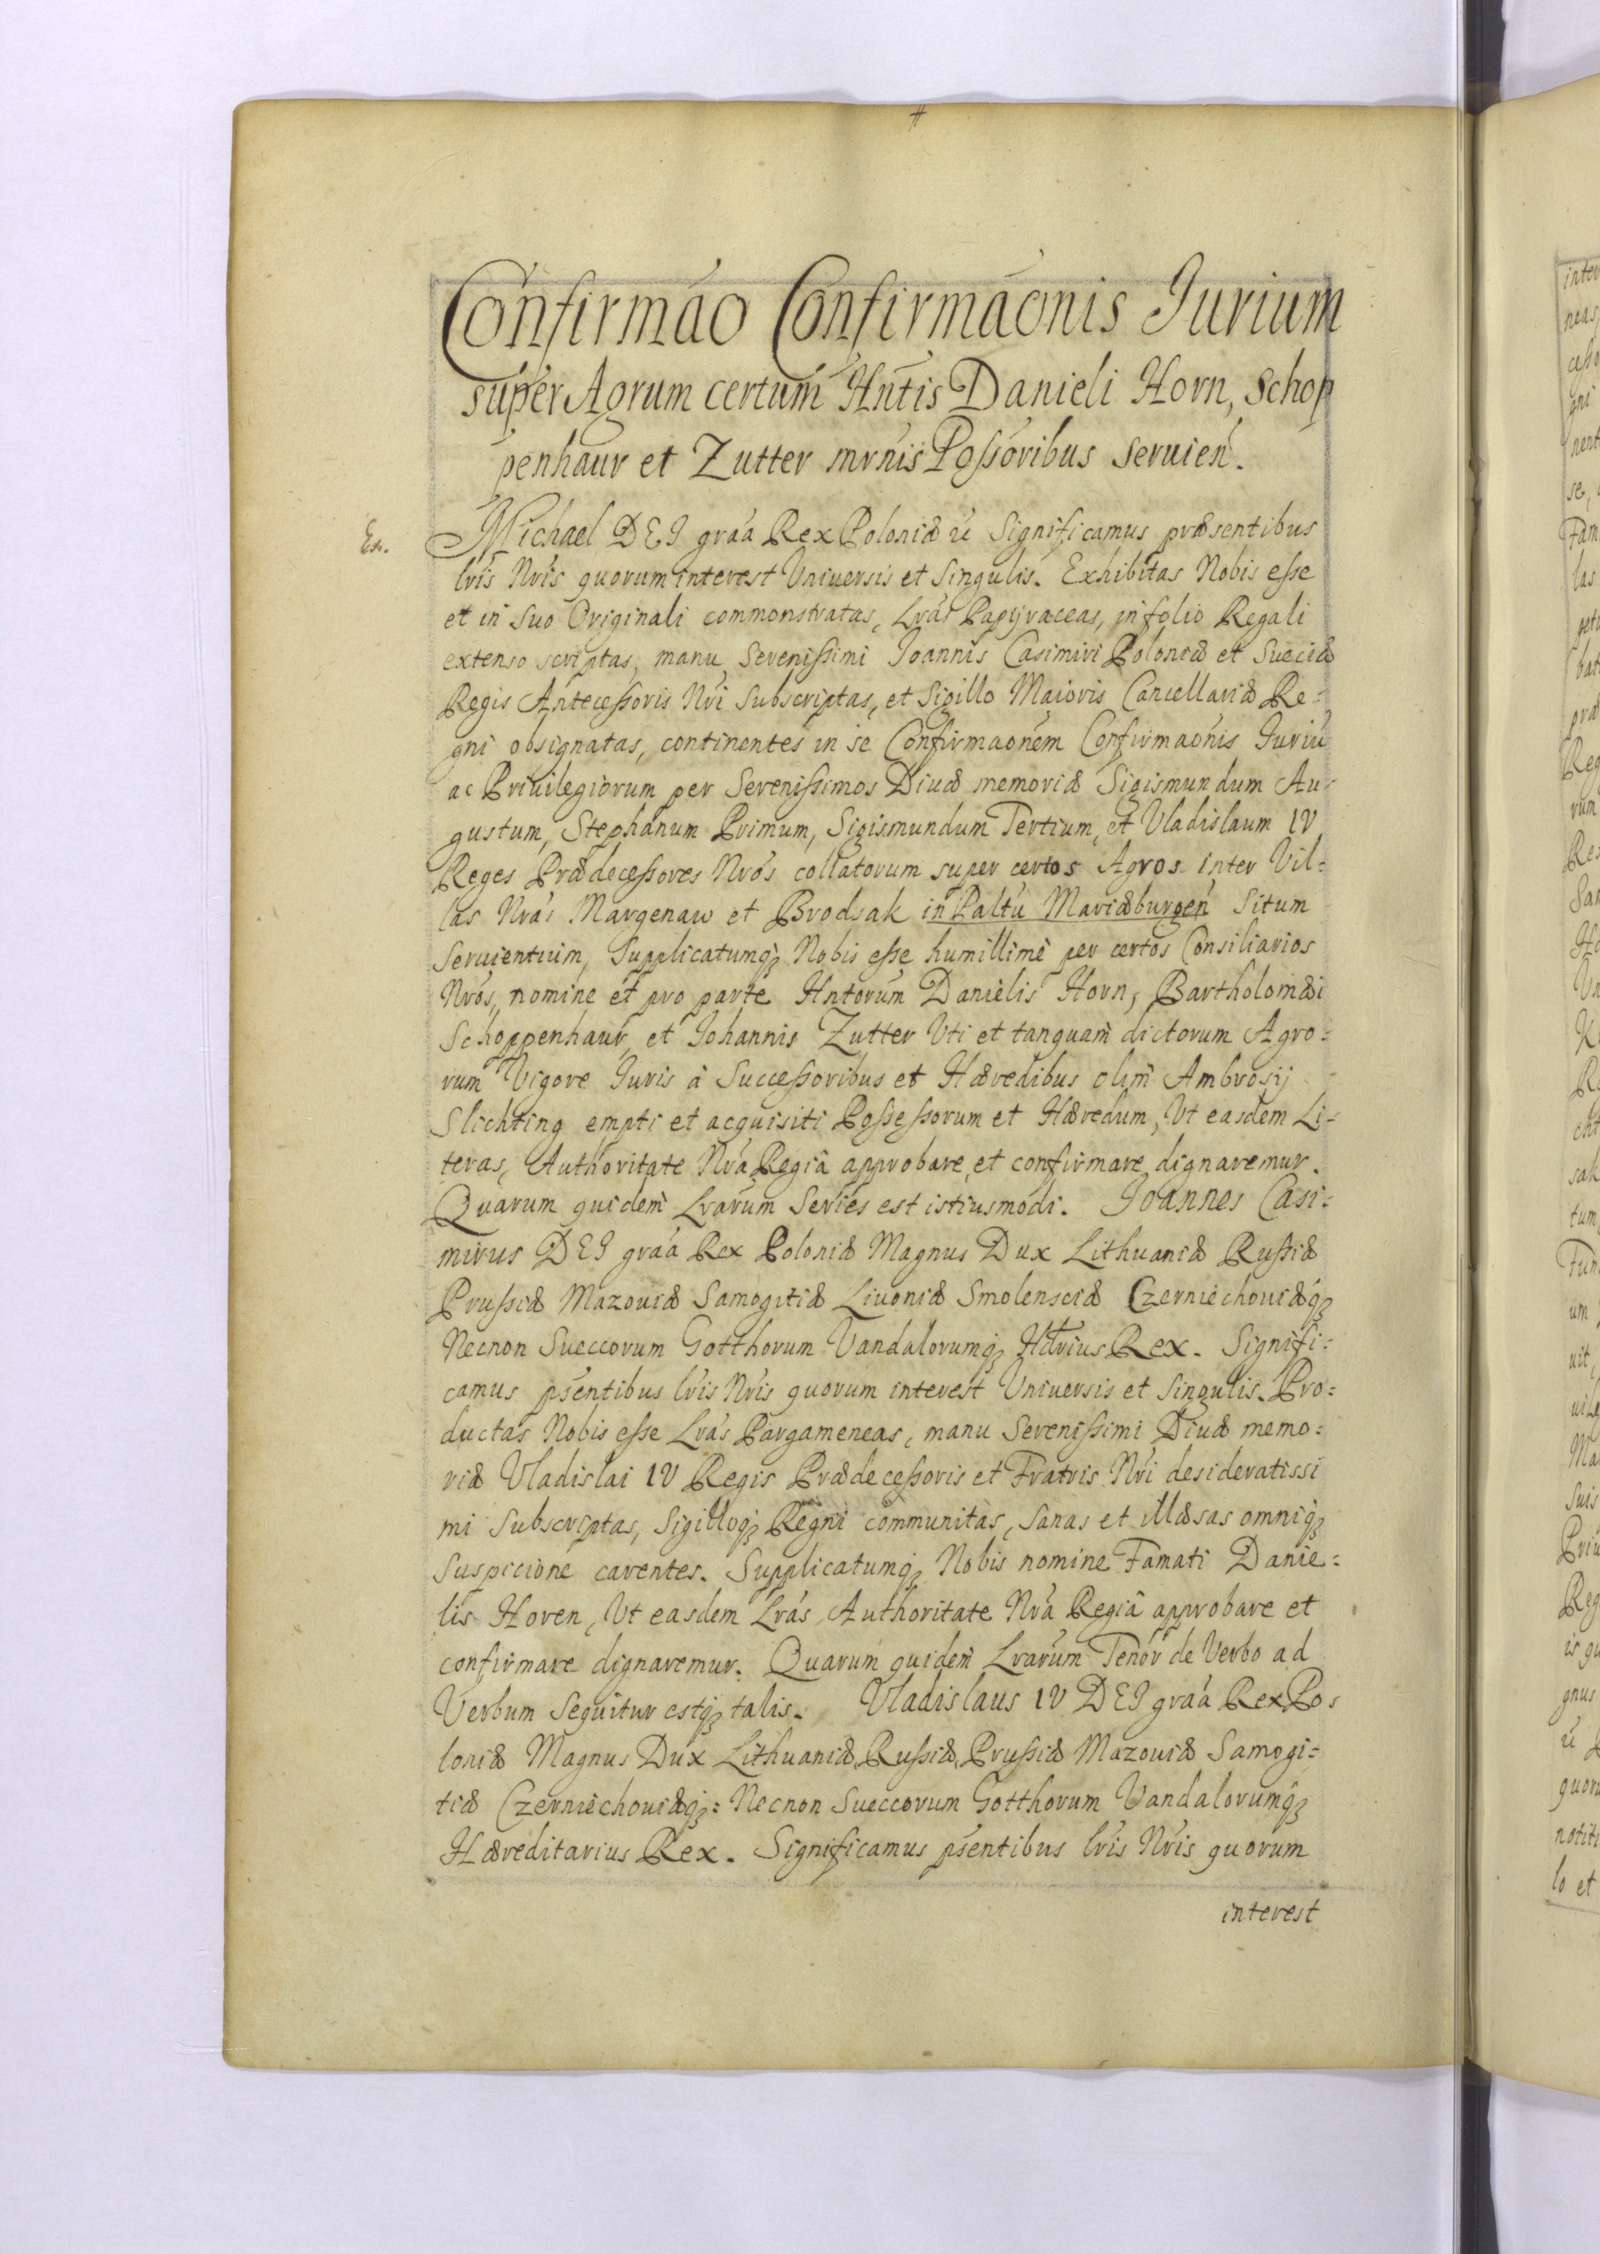 Confirmao Confirmaonis Jurium
super Agrum certum Hntis Danieli Horn, Schop
penhaur et Zutter mrnis Poßoribus seruien.
Ex.
Michael DEI graa Rex Poloniæ &c Significamus præsentibus
lris Nris quorum interest Vniuersis et singulis. Exhibitas Nobis eße
et in suo Originali commonstratas, Lras Papyraceas, in folio Regali
extenso scriptas, manu Serenißimi Joannis Casimiri Poloniæ et Sueciæ
Regis Anteceßoris Nri subscriptas, et Sigillo Maioris Cancellariæ Re-
gni obsignatas, continentes in se Confirmaonem Confirmaonis Juriu
ac Priuilegiorum per Serenißimos Diuæ memoriæ Sigismundum Au-
gustum, Stephanum Primum, Sigismundum Tertium, et Vladislaum IV
Reges Prædeceßores Nros collatorum super certos Agros inter Vil-
las Nras Margenaw et Brodsak in Paltu Mariæburgen situm
seruientium, Supplicatumq; Nobis eße humillime per certos Consiliarios
Nros, nomine et pro parte Hntorum Danielis Horn, Bartholomæi
Schoppenhaur, et Johannis Zutter Vti et tanquam dictorum Agro-
rum Vigore Juris à Succeßoribus et Hæredibus olim Ambrosij
Slichting empti et acquisiti Poßeßorum et Hæredum, Vt easdem Li-
teras, Authoritate Nra Regiâ approbare et confirmare dignaremur.
Quarum quidem Lrarum Series est istiusmodi. Joannes Casi-
mirus DEI graa Rex Poloniæ Magnus Dux Lithuaniæ Rußiæ
Prußiæ Mazouiæ Samogitiæ Liuoniæ Smolensciæ Czerniechouiæq;
Necnon Sueccorum Gotthorum Vandalorumq; Hdrius Rex. Signifi-
camus psentibus lris Nris quorum interest Vniuersis et Singulis. Pro-
ductas Nobis eße Lras Pargameneas, manu Serenißimi Diuæ memo-
riæ Vladislai IV Regis Prædeceßoris et Fratris Nri desideratissi
mi subscriptas, Sigilloq; Regni communitas, sanas et illæsas omniq;
suspicione carentes. Supplicatumq; Nobis nomine Famati Danie-
lis Horen, Vt easdem Lras Authoritate Nra Regiâ approbare et
confirmare dignaremur. Quarum quidem Lrarum Tenor de Verbo ad
Verbum Sequitur estq; talis. Vladislaus IV DEI graa Rex Po-
loniæ Magnus Dux Lithuaniæ, Rußiæ, Prußiæ Mazouiæ Samogi-
tiæ Czerniechouiæq; Necnon Sueccorum Gotthorum Vandalorumq;
Hæreditarius Rex. Significamus psentibus lris Nris quorum
interest